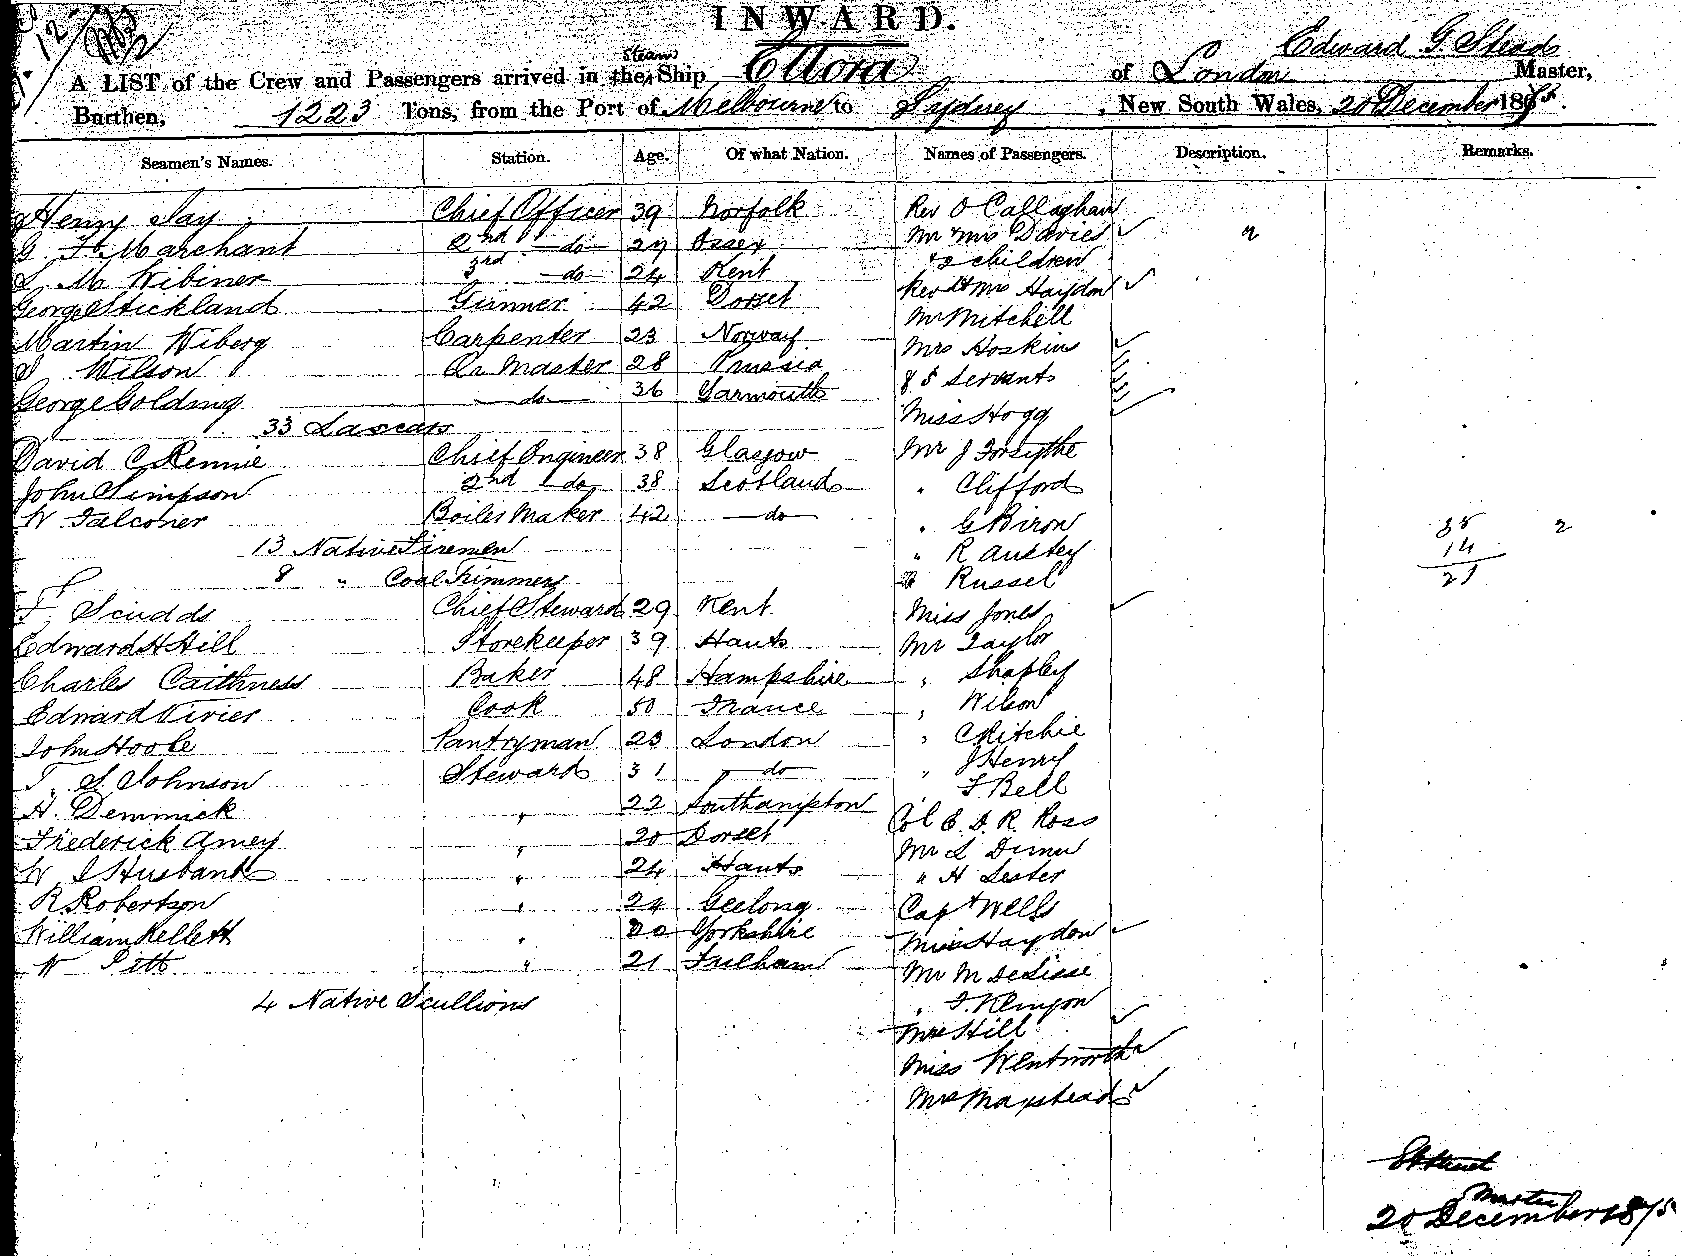 INWARD.
Edward G. Stead
A LIST of the Crew and Passengers arrived in the Steam Ship Ellora of London Master,
Burthen, 1223 Tons, from the Port of Melbourne to Sydney, New South Wales, 20 December 1875.
Seamen's Names. Station. Age. Of what Nation. Names of Passengers. Description. Remarks.
Henry Jay Chief Officer 39 Norfolk Rev O Callaghan
G. F. Marchant 2nd do 27 Essex Mr & Mrs Davies 2
L. M. Wibmer 3rd do 24 Kent & 2 children
George Stickland Gunner 42 Dorset Rev & Mrs Haydon
Martin Wiberg Carpenter 23 Norway Mr Mitchell
Wilson Qr Master 28 Prussia Mrs Hoskins
George Golding do 36 Yarmouth & 5 Servants
33 Lascars Miss Hogg
David C Rennie Chief Engineer 38 Glasgow Mr J Forsythe
John Simpson 2nd do 38 Scotland " Clifford
W Falconer Boiler Maker 42 do " G Biron 35 2
13 Native Firemen " R Austey 14
8 " Coal Trimmers Russel 21
F Scudds Chief Steward 29 Kent Miss Jones
Edward H Hill Storekeeper 39 Hants Mr Taylor
Charles Caithness Baker 48 Hampshire " Shapley
Edward Vivier Cook 50 France " Wilson
John Hoole Pantryman 23 London " C Ritchie
T. S. Johnson Steward 31 do " J Henry
A. Demmick " 22 Southampton " F Bell
Frederick Amey " 20 Dorset Col E. D. R. Ross
W J Husband " 24 Hants Mr L
R Robertson " 24 Geelong " H Lester
William Kellett " 20 Yorkshire Capt Wells
W Pitt " 21 Fulham Miss Haydon
4 Native Scullions Mr M De Lisse
" F. Klingon
Mrs Hill
Miss Wentworth
Mrs Maxstead
Master
20 December 1875